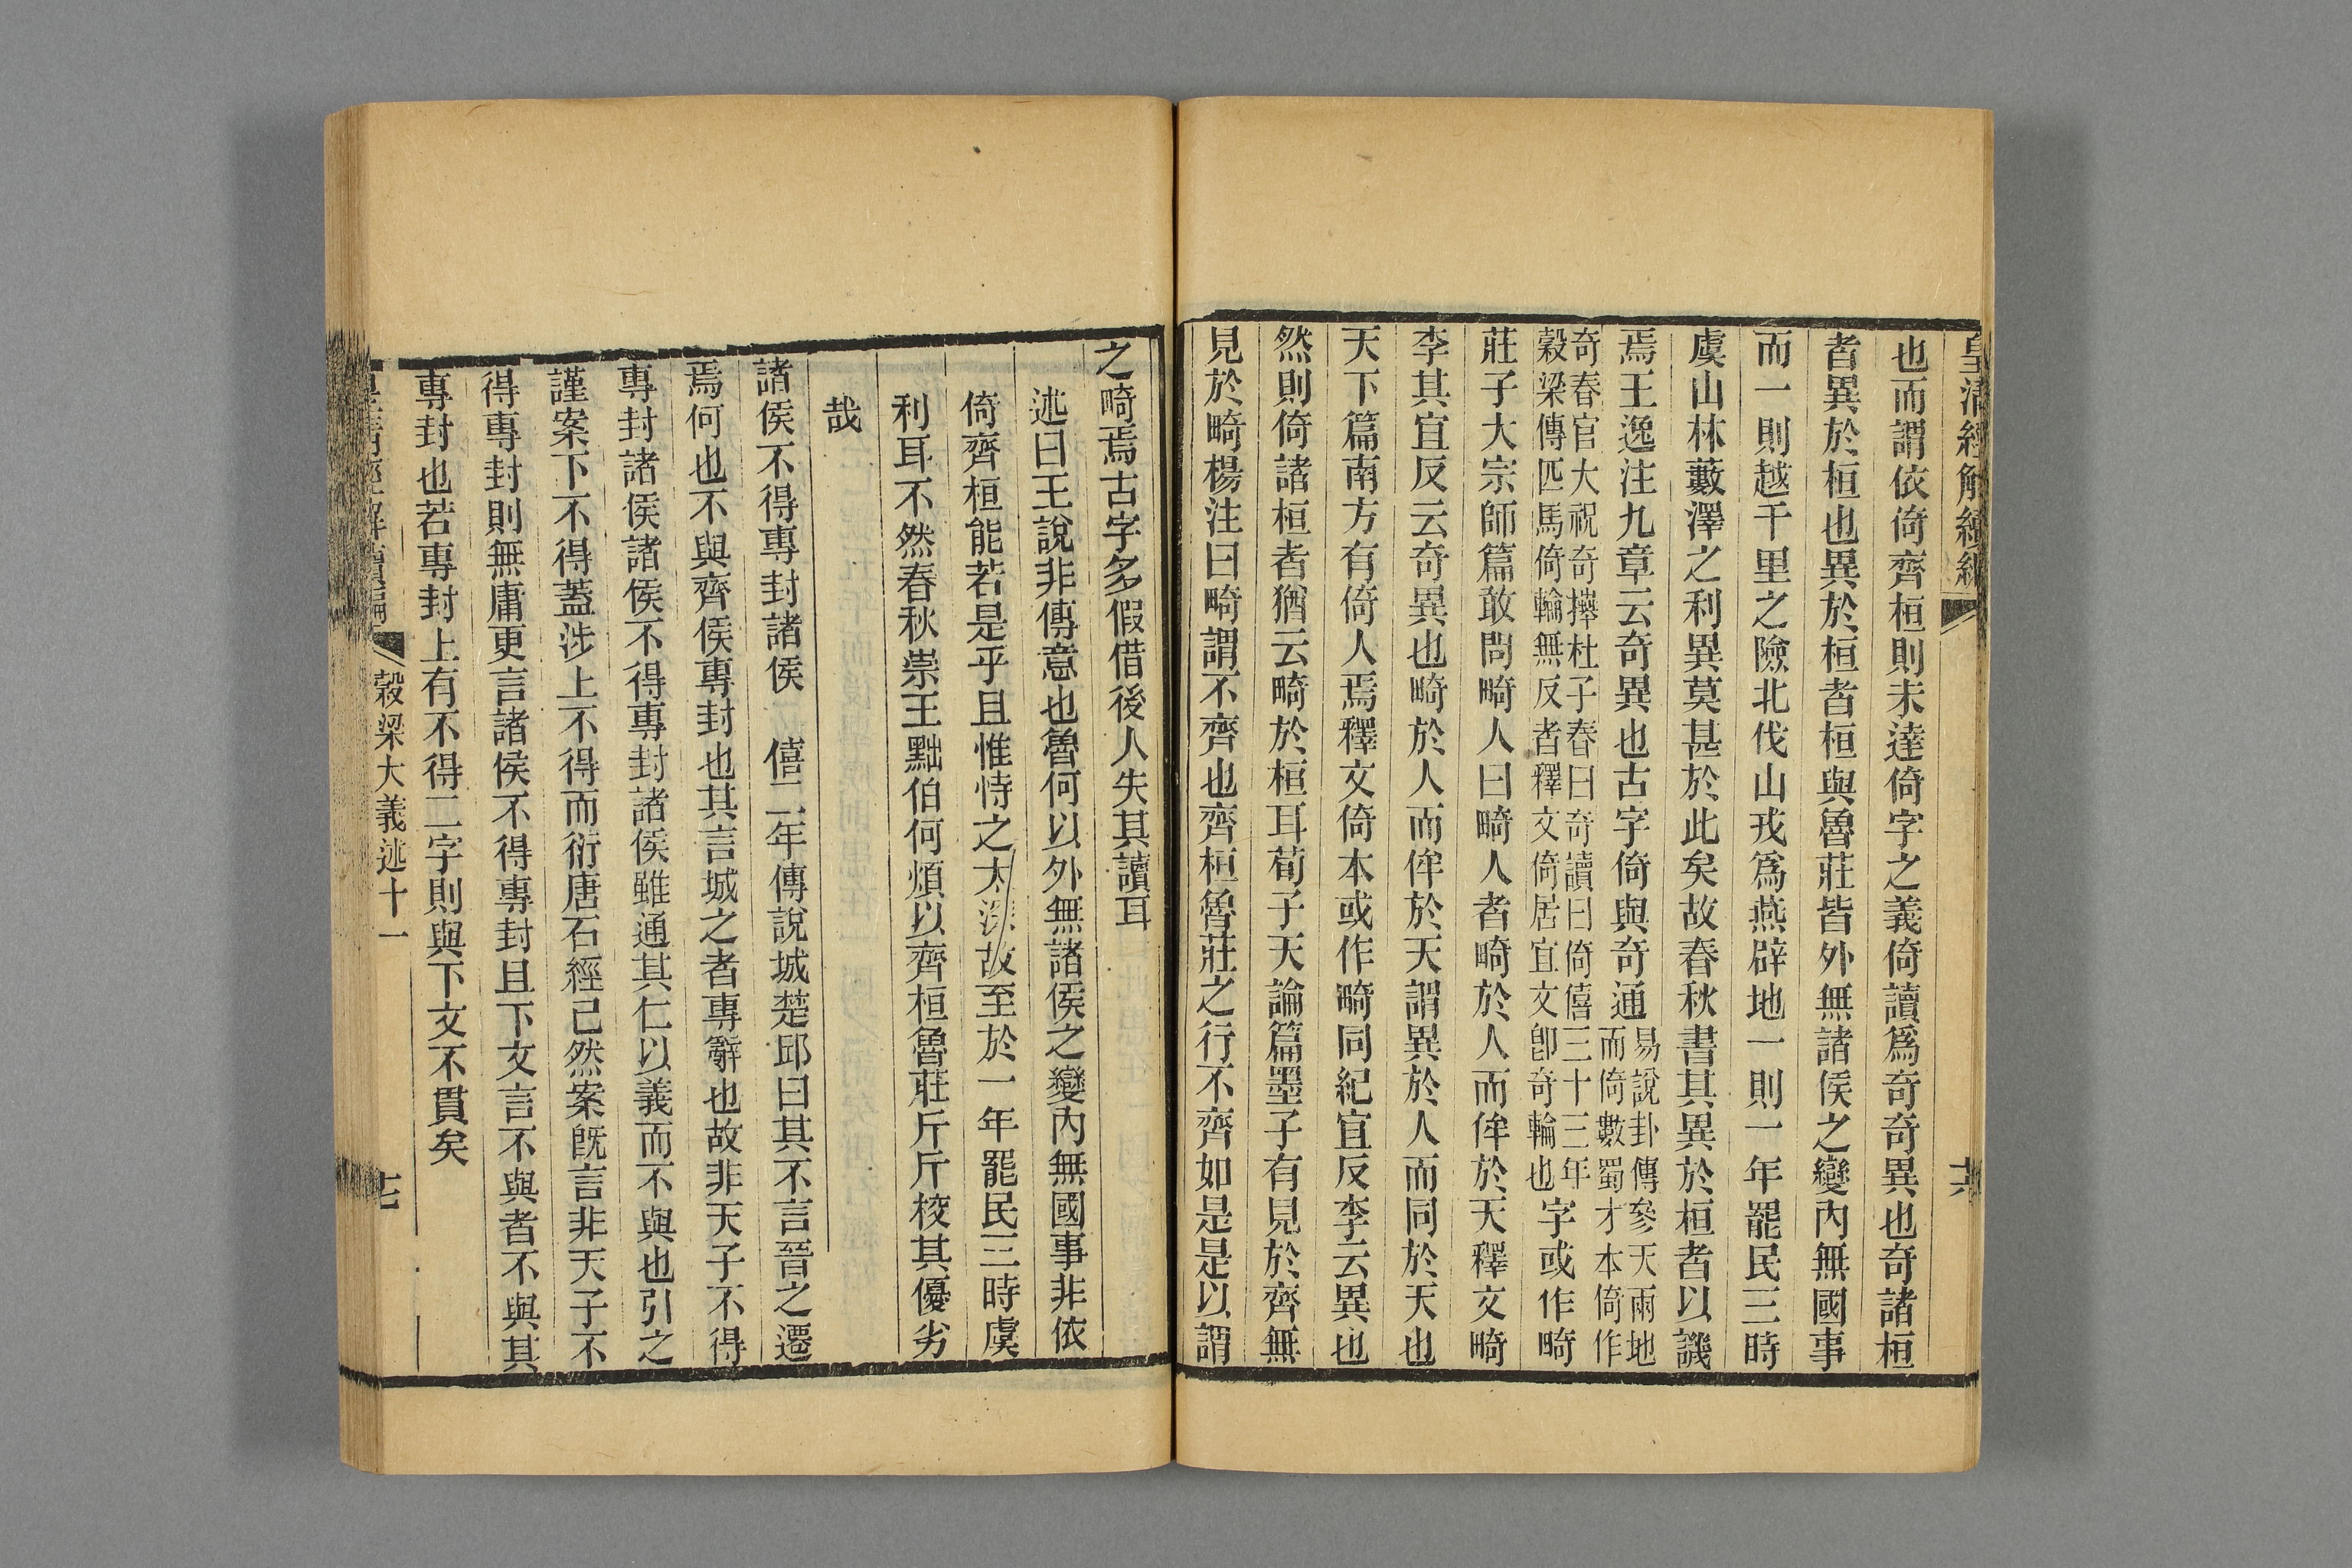 皇清經解續編
六
也而謂依倚齊桓則未達倚字之義倚讀爲奇奇異也奇諸桓
者異於桓也異於桓者桓與魯莊皆外無諸侯之變內無國事
而一則越千里之險北伐山戎爲燕辟地一則一年罷民三時
虞山林藪澤之利異莫甚於此矣故春秋書其異於桓者以譏
焉王逸注九章云奇異也古字倚與奇通易說卦傳參天兩地
而倚數蜀才本倚作
奇春官大祝奇㩻杜子春曰奇讀曰倚僖三十三年
穀梁傳匹馬倚輪無反者釋文倚居宜文卽奇輪也字或作畸
莊子大宗師篇敢問畸人曰畸人者畸於人而侔於天釋文畸
李其宜反云奇異也畸於人而侔於天謂異於人而同於天也
天下篇南方有倚人焉釋文倚本或作畸同紀宜反李云異也
然則倚諸桓者猶云畸於桓耳荀子天論篇墨子有見於齊無
見於畸楊注曰畸謂不齊也齊桓魯莊之行不齊如是是以謂
之畸焉古字多假借後人失其讀耳
述曰王說非傳意也魯何以外無諸侯之變內無國事非依
倚齊桓能若是乎且惟恃之太深故至於一年罷民三時虞
利耳不然春秋崇王黜伯何煩以齊桓魯莊斤斤校其優劣
哉
諸侯不得專封諸侯
僖二年傳說城楚邱曰其不言晉之遷
焉何也不與齊侯專封也其言城之者專辭也故非天子不得
專封諸侯諸侯不得專封諸侯雖通其仁以義而不與也引之
謹案下不得蓋涉上不得而衍唐石經已然案旣言非天子不
得專封則無庸更言諸侯不得專封且下文言不與者不與其
專封也若專封上有不得二字則與下文不貫矣
皇清經解續編
穀梁大義述十一
七